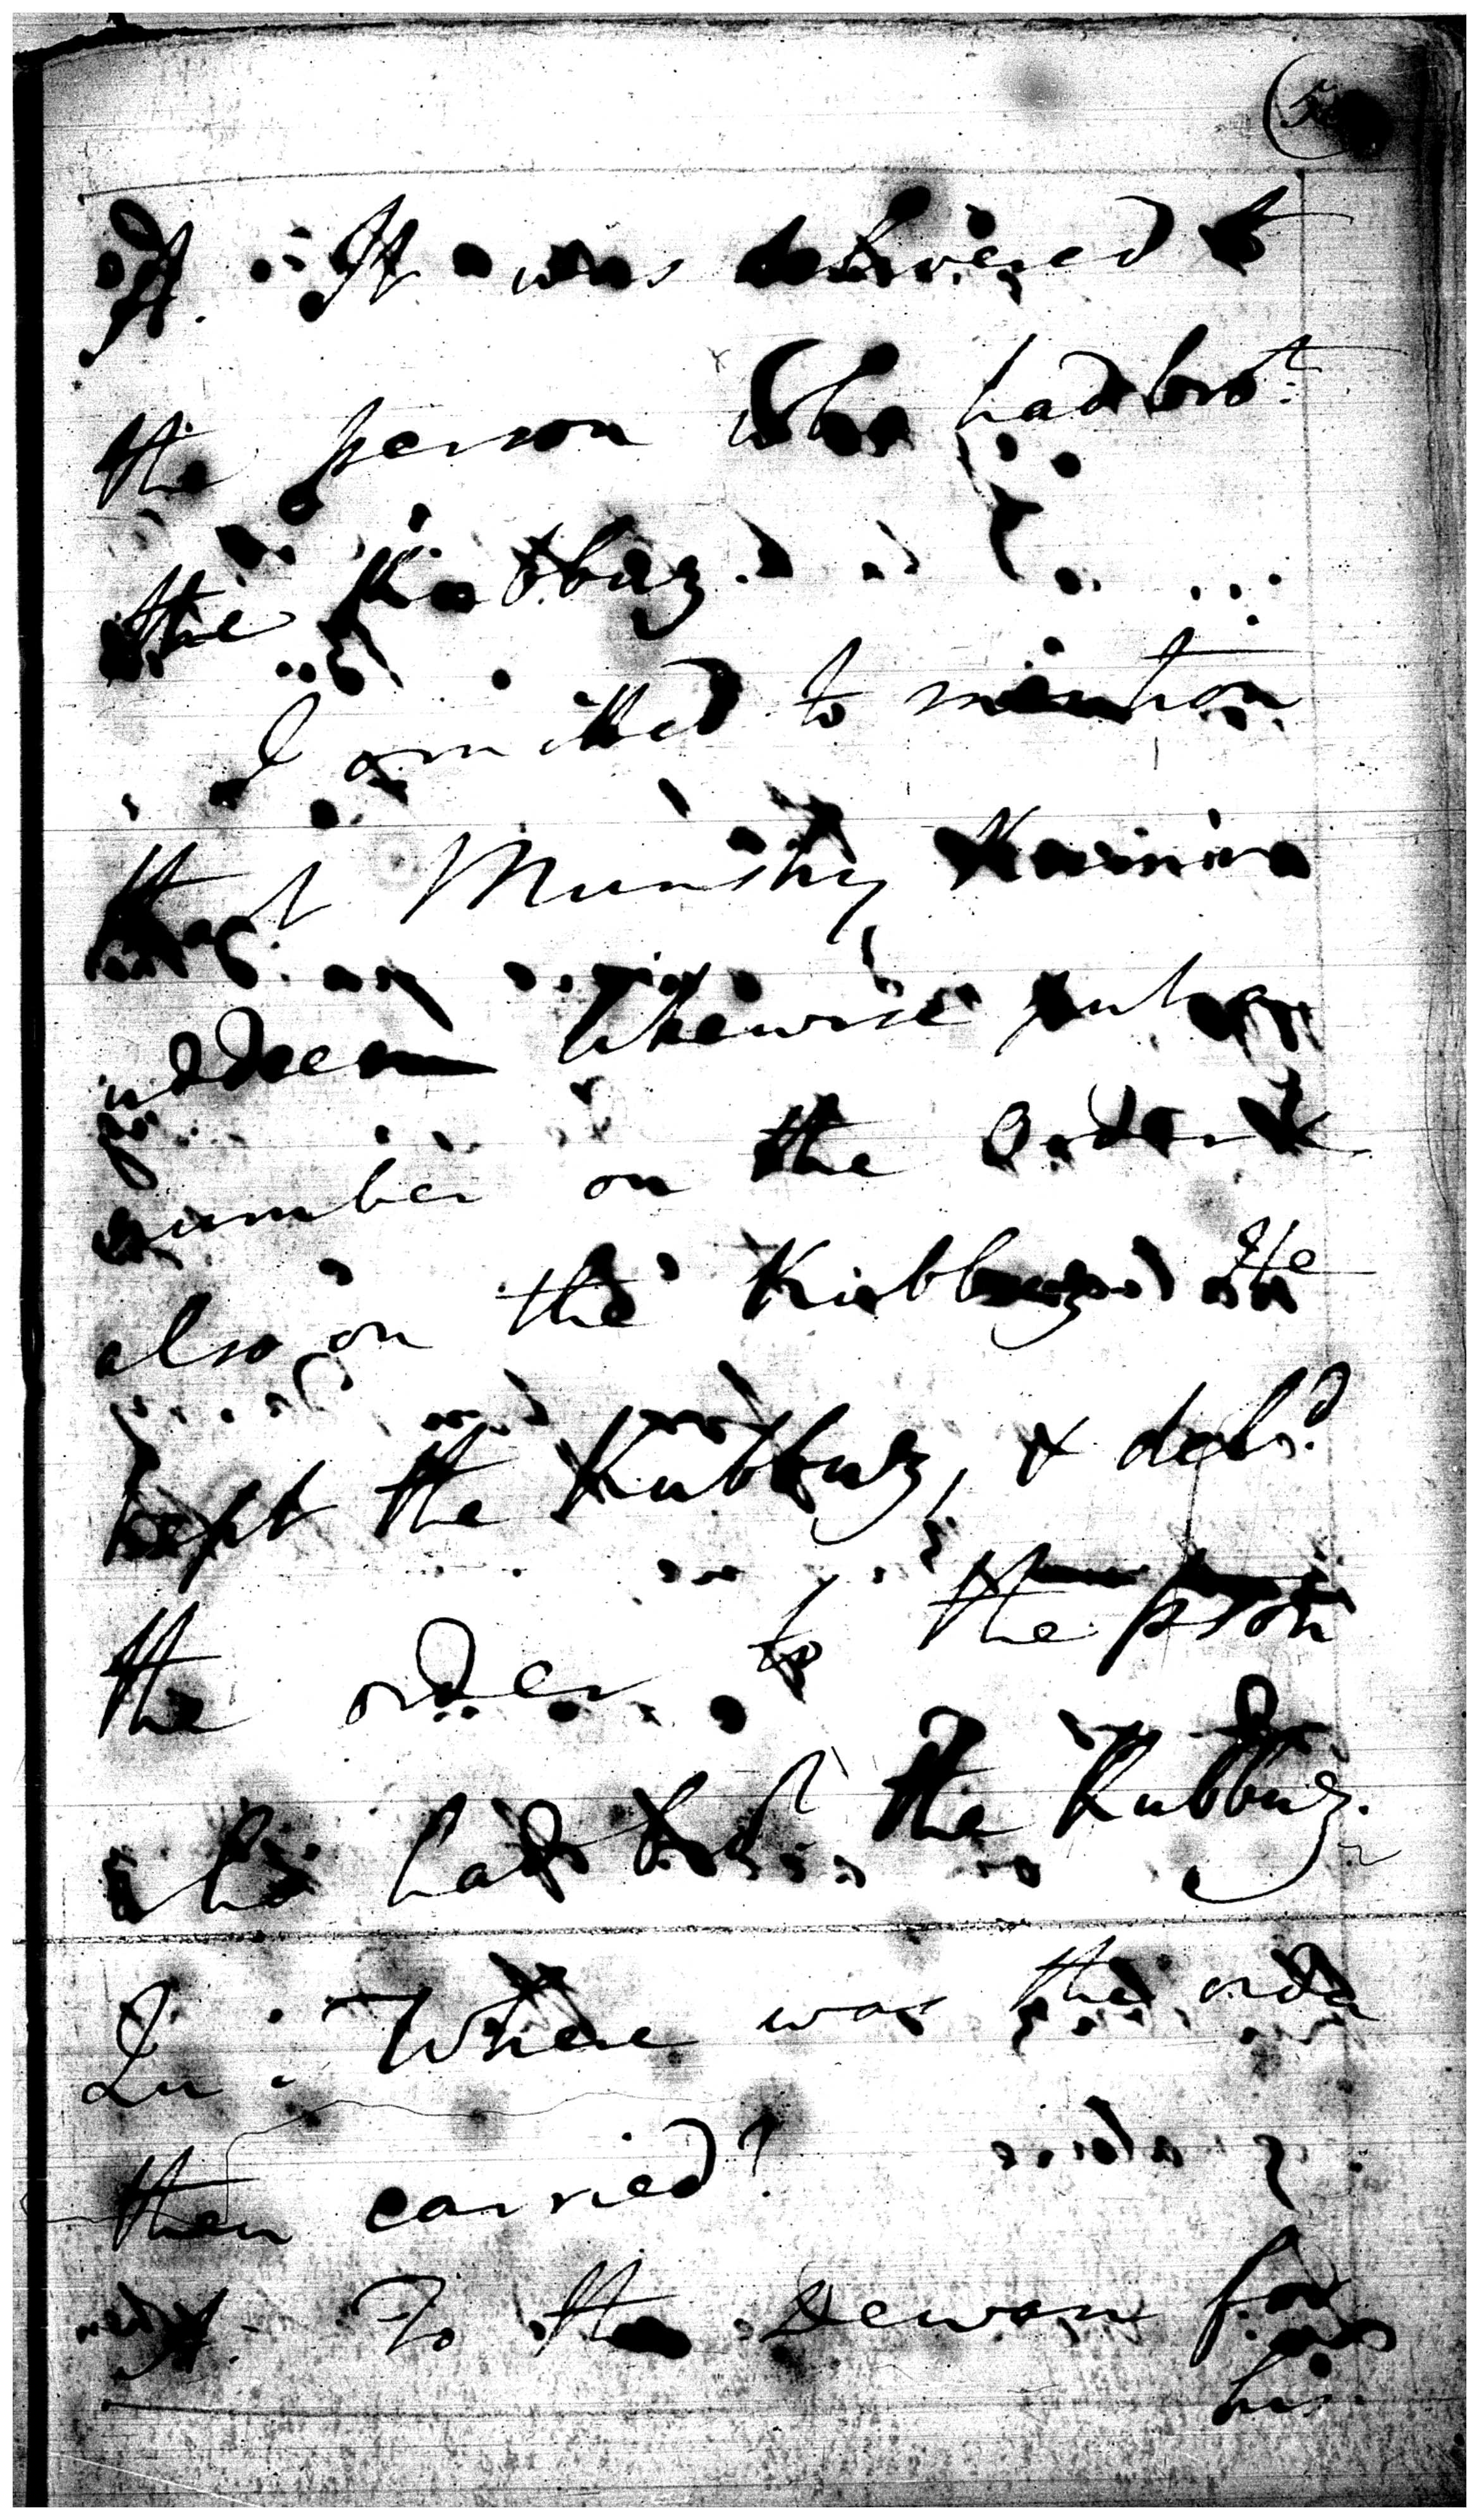 A. It was delivered to
the person who had bro.t
the Kubbuz.
I omitted to mention
that Munshy
uddeen likewise put a
number on the Order &
also on the Kubbuz. He
kept the Kubbuz, & del.d
the order to the pson
who had bro.t the Kubbuz.
Qu. Where was the order
then carried?
A. To the Dewan for
his